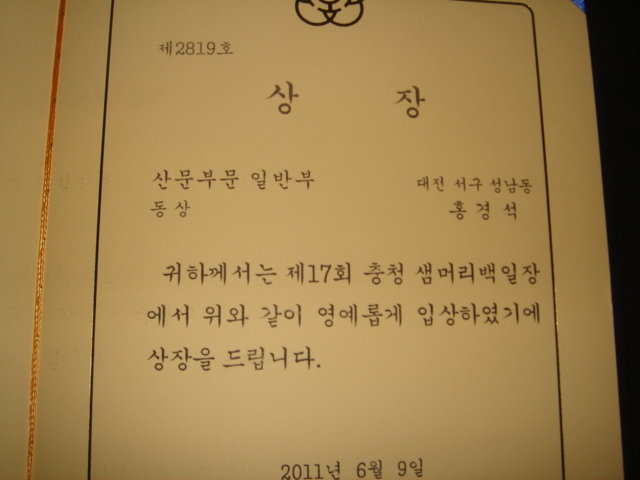 제2819호
상 장
산문부문 일반부
대전 서구 성남동
동상
홍경석
귀하께서는 제17회 충청 샘머리백일장
에서 위와 같이 영예롭게 입상하였기에
상장을 드립니다.
2011년 6월 9일